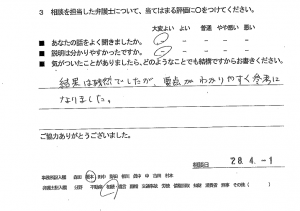 3 相談を担当した弁護士について、当てはまる評価に○をつけてください。
大変よい よい 普通 やや悪い 悪い
■ あなたの話をよく聞きましたか。
■ 説明は分かりやすかったですか。
■ 気がついたことがありましたら、どのようなことでも結構ですからお書きください。
結果は残念でしたが、要点がわかりやすく参考に
なりました。
ご協力ありがとうございました。
相談日 28.4.-1
事務所記入欄
弁護士記入欄 分野 不動産 相続